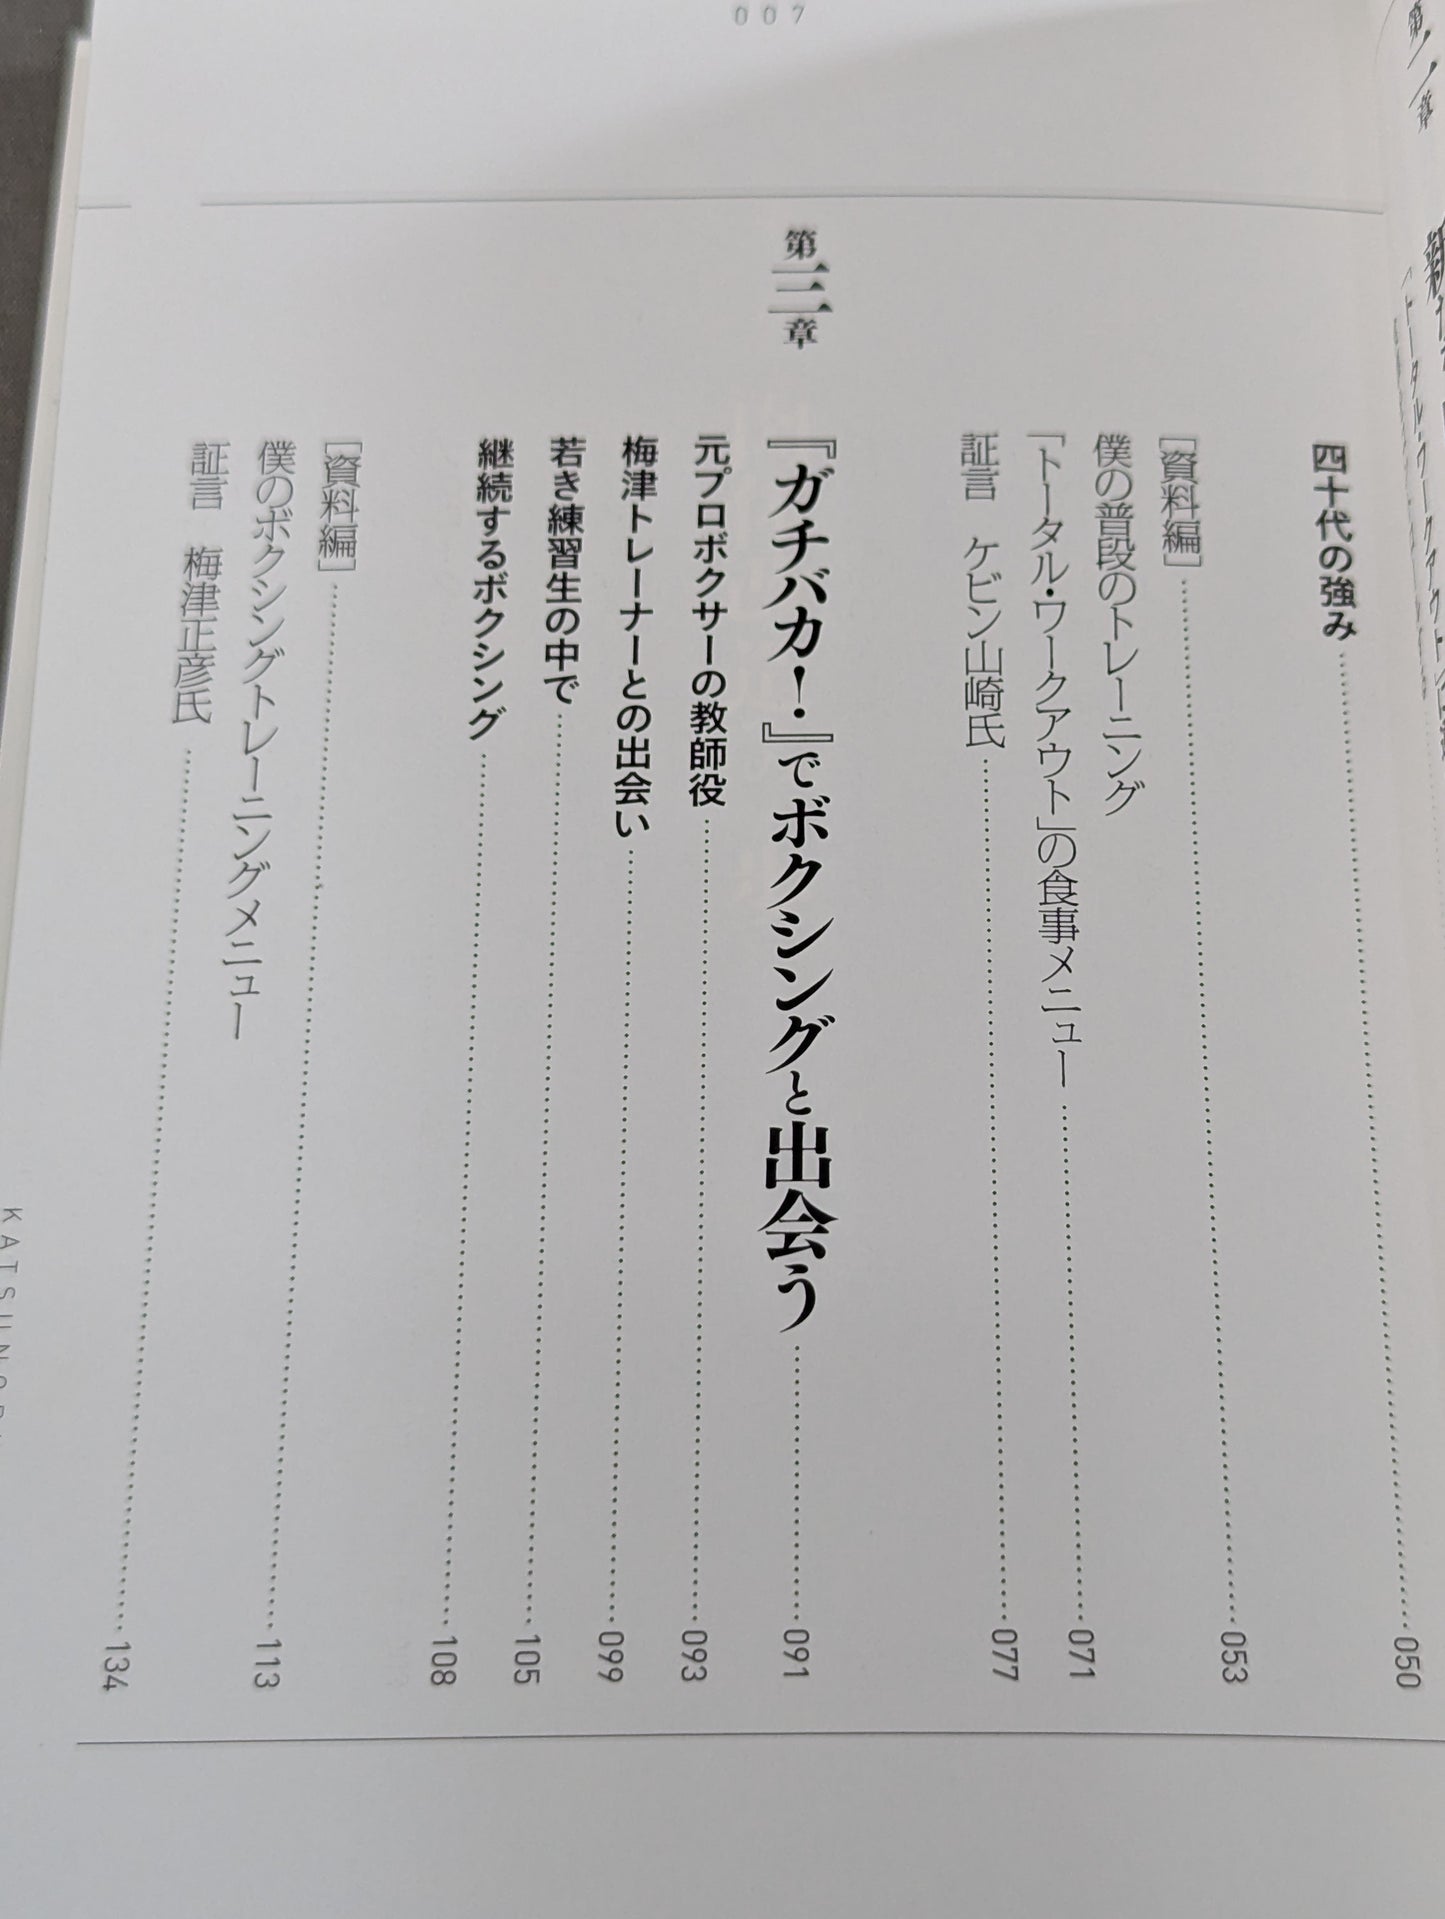 007
第二章
四十代の強み 050
［資料編］ 053
僕の普段のトレーニング
「トータル・ワークアウト」の食事メニュー 071
証言　ケビン山崎氏 077
第三章
『ガチバカ！』でボクシングと出会う 091
元プロボクサーの教師役 093
梅津トレーナーとの出会い 099
若き練習生の中で 105
継続するボクシング 108
［資料編］ 113
僕のボクシングトレーニングメニュー
証言　梅津正彦氏 134